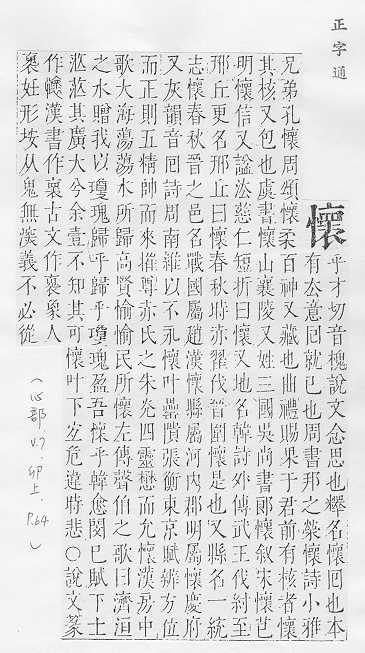 正字通
懷
乎才切音槐說文念思也釋名懷回也本
有去意回就已也周書邦之榮懷詩小雅
兄弟孔懷周頌懷柔百神又藏也曲禮賜果于君前有核者懷
其核又包也虞書懷山襄陵又姓三國吳尚書郎懷叙宋懷芑
明懷信又諡法慈仁短折曰懷又地名韓詩外傳武王伐紂至
邢丘更名邢丘曰懷春秋時赤翟伐晉圍懷是也又縣名一統
志懷春秋晉之邑名戰國屬趙漢懷縣屬河內郡明屬懷慶府
又灰韻音回詩周南維以不永懷叶嵬隤張衡東京賦辨方位
而正則五精帥而來摧尊赤氏之朱光四靈懋而允懷漢房中
歌大海蕩蕩水所歸高賢愉愉民所懷左傳聲伯之歌曰濟洹
之水贈我以瓊瑰歸乎歸乎瓊瑰盈吾懷乎韓愈閔已賦下土
茫茫其廣大兮余壹不知其可懷叶下危違時悲○說文篆
作漢書作褱古文作褱象人
褱妊形按从鬼無義不必從
(心部 V.7. 卯上 P.64)